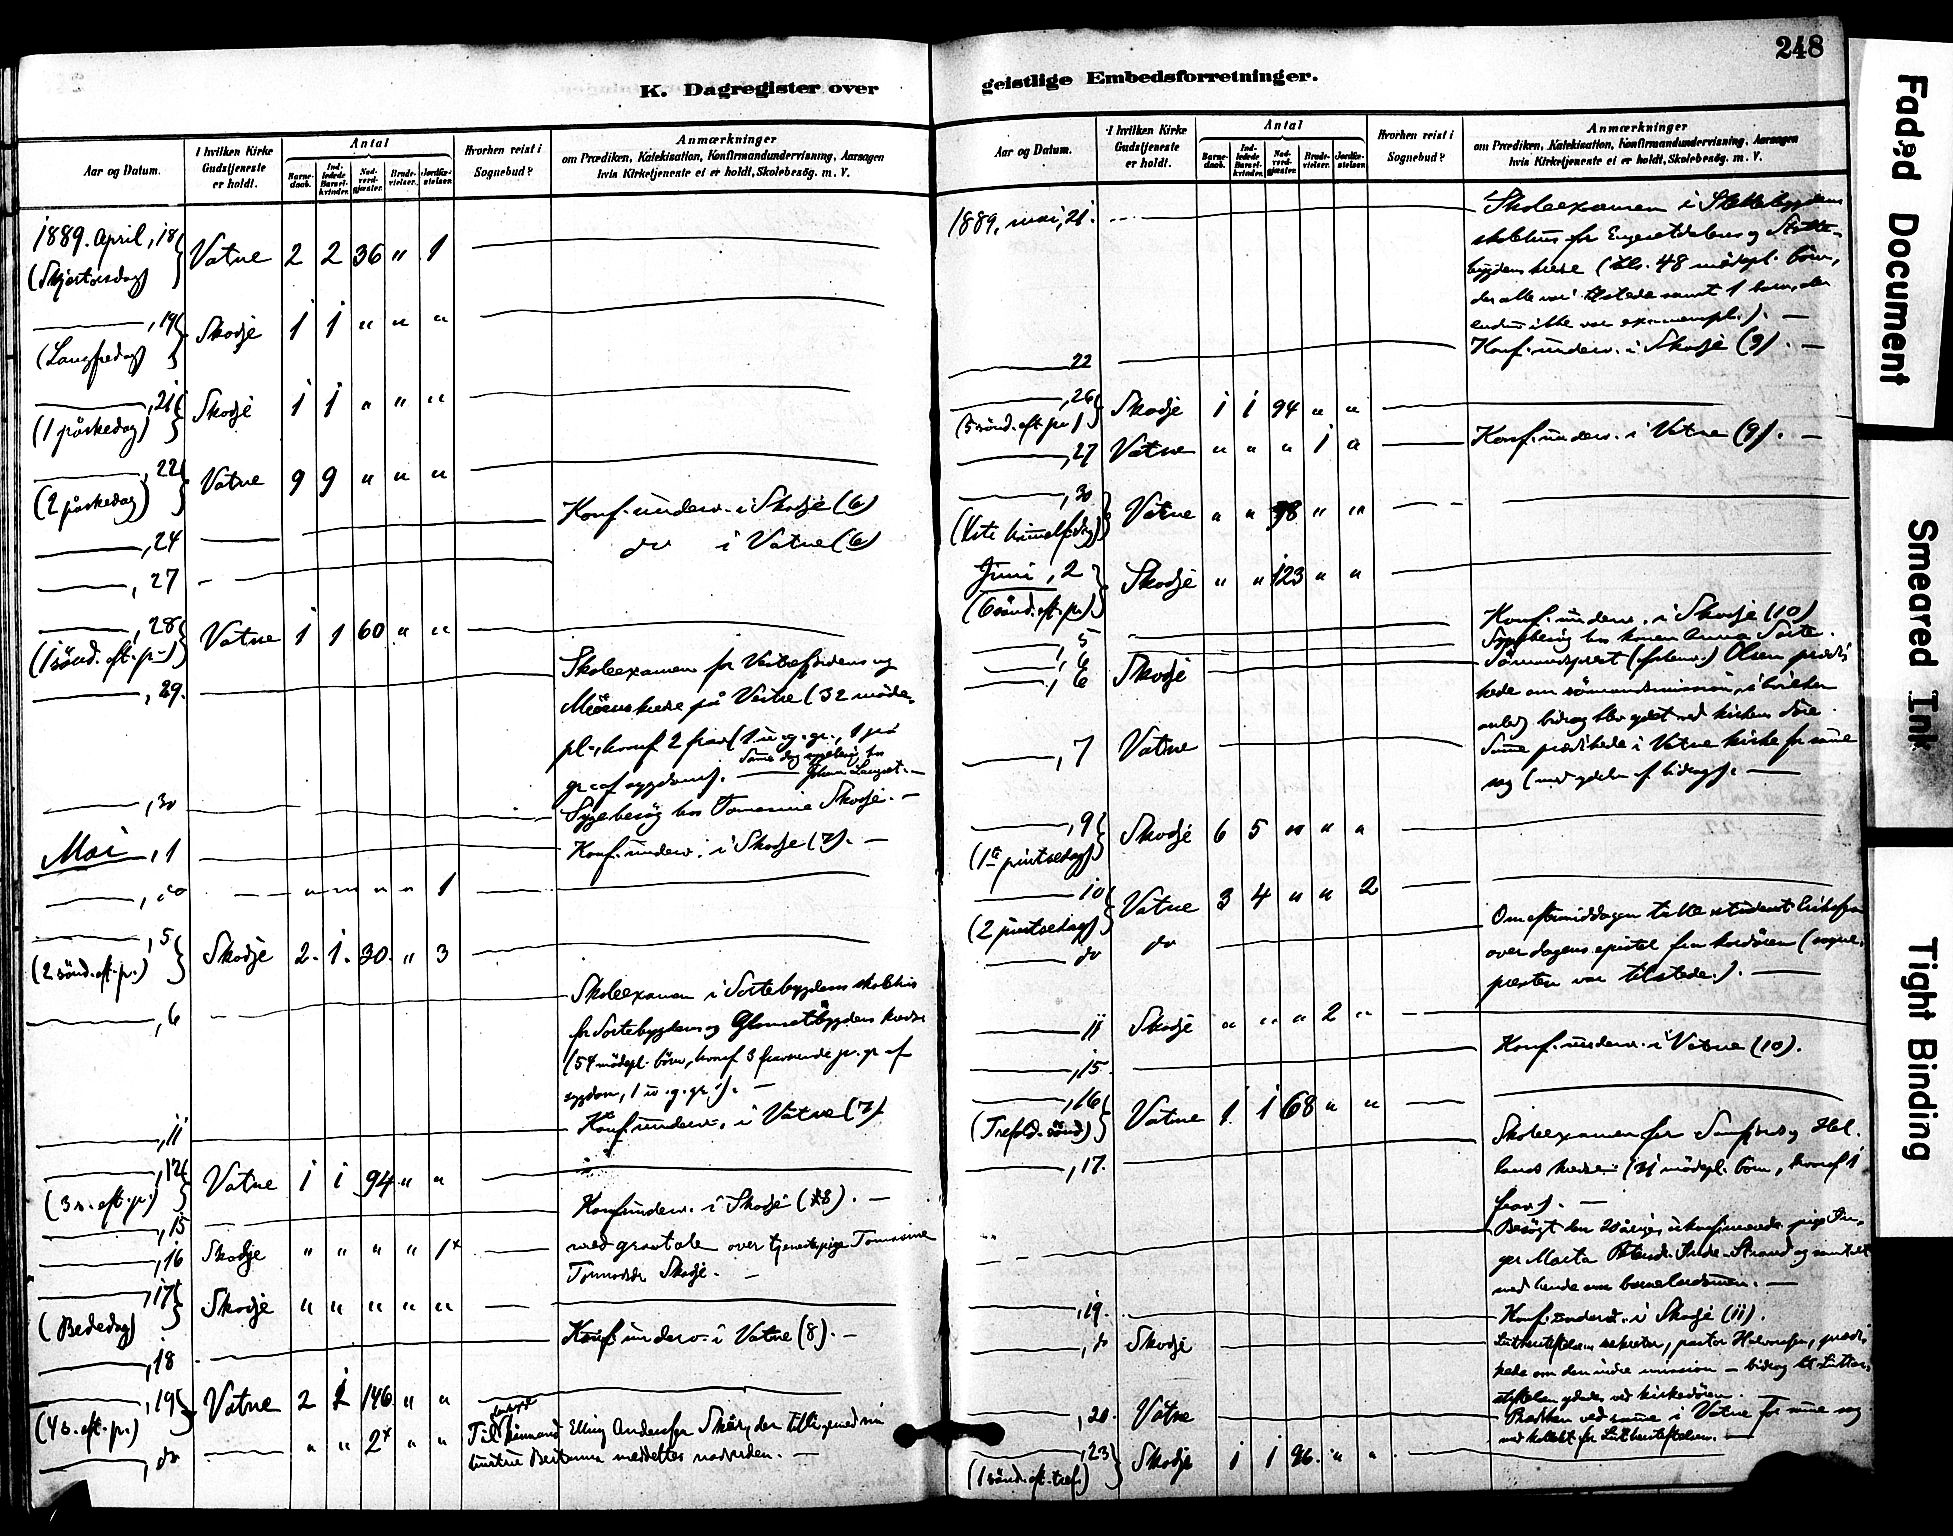 248
K. Dagregister over
Aar og Datum.
I hvilken Kirke Gudstjeneste er holdt.
Antal
Barnedaab.
Indledede Barselkvinder.
Nadverdgjæster.
Brudevielser.
Jordfæstelser.
Hvorhen reist i Sognebud?
Anmærkninger
om Prædiken, Katekisation, Konfirmandundervisning, Aarsagen
hvis Kirketjeneste ei er holdt, Skolebesøg. m. V.
1889. April, 18 Vatne 2 2 36 " 1
(Skjærtorsdag)
, 19 Skodje 1 1 " " "
(Langfredag)
, 21 Skodje 1 1 " " "
(1 påskedag)
, 22 Vatne 9 9 " " "
(2 påskedag)
, 24 Konf.underv. i Skodje (6)
, 27 do i Vatne (6)
, 28 Vatne 1 1 60 " "
(1 sönd. eft. p.)
, 29. Skoleexamen for
kreds på Vatne (32 mödepl.,
hvoraf 2 frav. (1 u. g. gr., 1 på
gr. af sygdom).
, 30 Sygebesög hos Tomasine Skodje. —
Mai, 1 Konf.underv. i Skodje (7). —
, do " " " " 1
, 5 Skodje 2. 1. 30. " 3
(2 sönd. eft. p.)
, 6 Skoleexamen i Sortebygdens skolehus
for Sortebygdens og kreds
(54 mödepl. börn, hvoraf 3 fraværende p. gr. af
sygdom, 1 u. g. gr.). —
, 11 Konf.underv. i Vatne (7)
, 12 Vatne 1 1 94 " "
(3 s. eft. p.)
, 15 Konf.underv. i Skodje (8). —
, 16 Skodje " " " " 1x med gravtale over tjenestepige Tomasine
Skodje. —
, 17 Skodje " " " " "
(Bededag)
, 18 Konf.underv. i Vatne (8). —
, 19 Vatne 2 2 146 " "
(4 s. eft. p.)
, do " " 2x " " Til Elling Andersen der tilligemed sin
hustru meddeltes nadverden. —
geistlige Embedsforretninger.
Aar og Datum.
I hvilken Kirke Gudstjeneste er holdt.
Antal
Barnedaab.
Indledede Barselkvinder.
Nadverdgjæster.
Brudevielser.
Jordfæstelser.
Hvorhen reist i Sognebud?
Anmærkninger
om Prædiken, Katekisation, Konfirmandundervisning, Aarsagen
hvis Kirketjeneste ei er holdt, Skolebesøg. m. V.
1889, mai, 21. Skoleexamen i Slettebygdens
skolehus for og Slettebygdens
kredse (tils. 48 mödepl. börn,
der alle var tilstede samt 1 barn, der
endnu ikke var examenspl.). —
22 Konf.underv. i Skodje (9). —
, 26 Skodje 1 1 94 " "
(5 sönd. eft. p.)
, 27 Vatne " " " 1 " Konf.underv. i Vatne (9). —
, 30 Vatne " " 98 " "
(Kristi himmelf.dag)
Juni, 2 Skodje " " 123 " "
(6 sönd. eft. p.)
, 5 Konf.underv. i Skodje (10)
, 6 Sygebesög hos konen Anna Sorte.
, 6 Skodje Sömandsprest (forhenv.) Olsen prædikede
om sömandsmission, i hvilken
anledn. bidrag blev ydet ved kirkens döre.
, 7 Vatne Samme prædikede i Vatne kirke for samme
sag (med ydelse af bidrag). —
, 9 Skodje 6 5 " " "
(1te pintsedag)
10 Vatne 3 4 " " 2
(2 pintsedag)
do do Om eftermiddagen talte student
over dagens epistel fra kordören (sognepresten
var tilstede.). —
11 Skodje " " " 2 "
, 15. Konf.underv. i Vatne (10).
, 16 Vatne 1 1 68 " "
(Trefold. sönd)
, 17. Skoleexamen for og
lands kredse (31 mödepl. börn, hvoraf 1
frav.). —
Besögt den 20 årige, ukonfirmerede pige
Marta og samtalt
med hende om barnelærdommen. —
, 19. Konf.underv. i Skodje (11).
, do Skodje Lutherstiftelsens sekretær, pastor prædikede
om den indre mission – bidrag til Lutherstiftelsen
ydedes ved kirkedören. —
, 20. Vatne Prædiken ved samme i Vatne for samme sag
med kollekt for Lutherstiftelsen. —
, 23 Skodje 1 1 96. " "
(1 sönd. eft. tref.)
Faded Document
Smeared Ink
Tight Binding